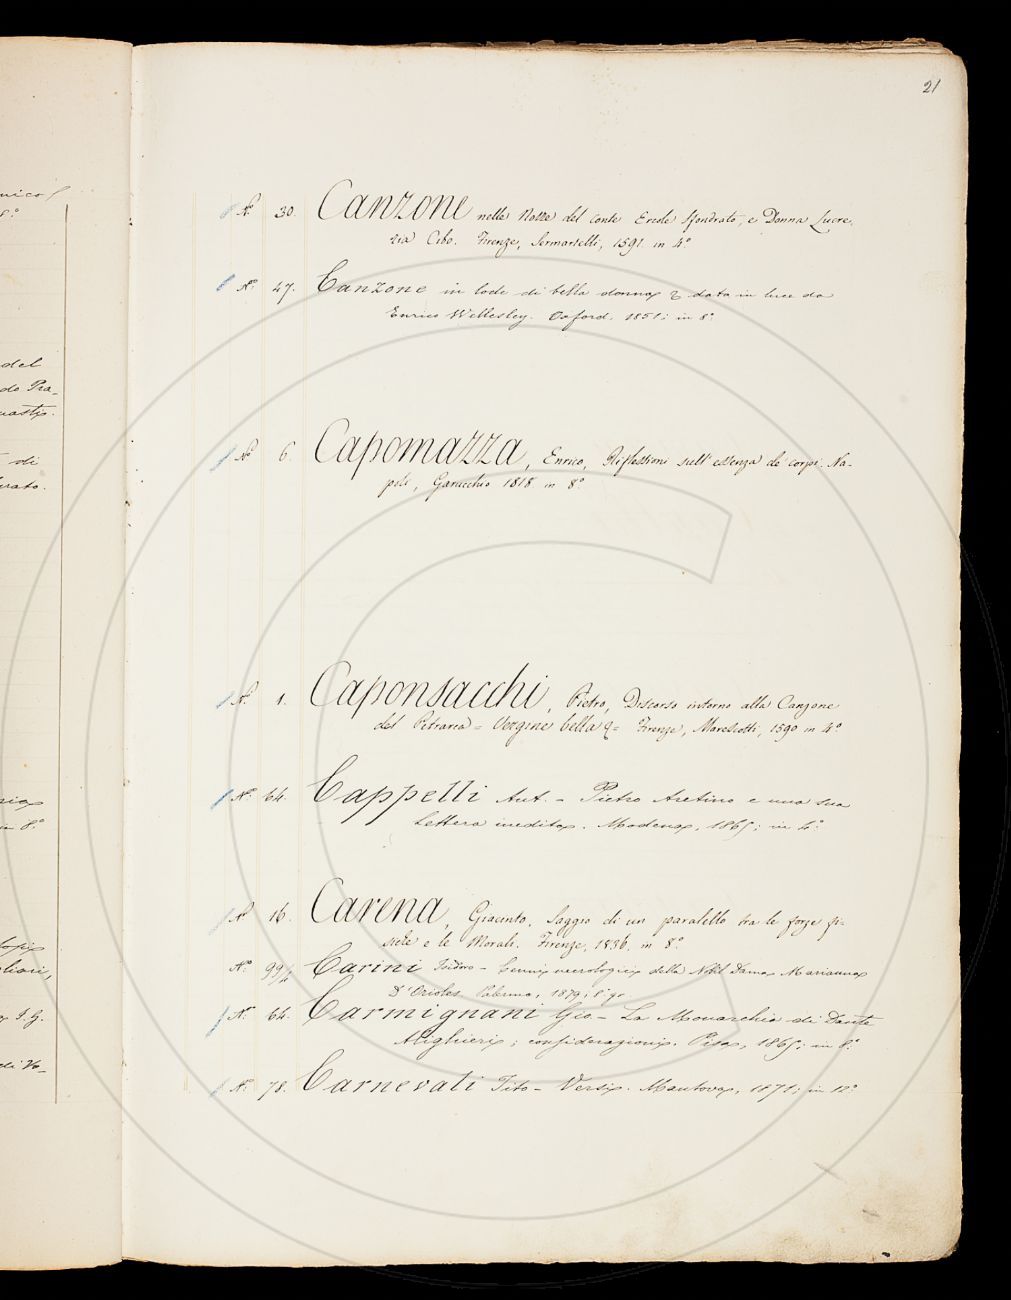 21
nico
8.º
del
do Pra-
di
8.º
di Vo-
Nº 30. Canzone nelle Nozze del Conte Ercole Sfondrato, e Donna Lucre-
zia Cibo. Firenze, Sermartelli, 1591. in 4º
Nº 47. Canzone in lode di bella donna & data in luce da
Enrico Wellesley. Oxford, 1851; in 8º.
Nº 6. Capomazza, Enrico, Riflessioni sull'essenza de' corpi. Na-
poli, Garucchio 1818 in 8º.
Nº 1. Caponsacchi, Pietro, Discorso intorno alla Canzone
del Petrarca = Vergine bella &= Firenze, Marescotti, 1590 in 4º
Nº 64. Cappelli Ant. - Pietro Aretino e una sua
lettera inedita. Modena, 1865; in 4º.
Nº 16. Carena, Giacinto, Saggio di un paralello tra le forze fi-
siche e le Morali. Firenze, 1836. in 8º.
Nº 99/ Carini Isidoro - Cenni necrologici della Nobil Dama Marianna
D'Orioles. Palermo, 1879; 8º gr.
Nº 64. Carmignani Gio. - La Monarchia di Dante
Alighieri; considerazioni. Pisa, 1865; in 8º.
Nº 78. Carnevali Tito - Versi. Mantova, 1871; in 12º.